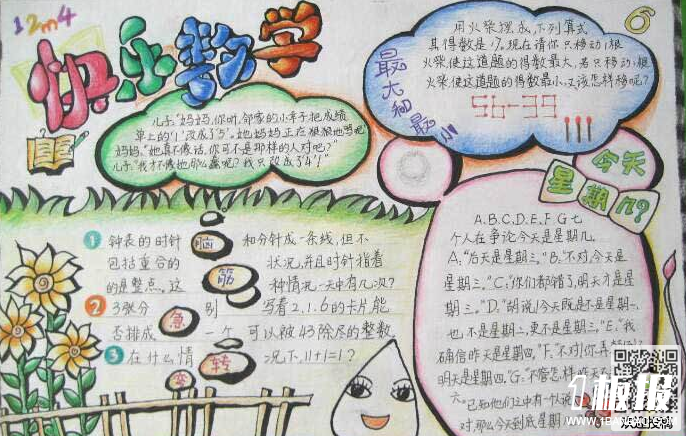 12m4
快乐数学
儿子:"妈妈,你听,邻家的小弟子把成绩
单上的'1'改成了'5',她妈妈正在狠狠地骂她
妈妈:"她真不像话,你可不是那样的人对吧?"
儿子:"我才不像她那么蠢呢?我只改成了'4'!"
最大和最小
用火柴摆成下列算式
其得数是17。现在请你只移动1根
火柴使这道题的得数最大,若只移动1根
火柴使这道题的得数最小,又该怎样移呢?
56-39
6
今天
星期几?
脑筋急转弯
1 钟表的时针和分针成一条线,但不
包括重合的状况,并且时针指着
的是整点。这种情况一天中有几次?
2 3张分别写着2.1.6的卡片能
否排成一个可以被43除尽的整数
3 在什么情况下,11+1=1?
A、B、C、D、E、F、G七
个人在争论今天是星期几。
A,"后天是星期三。"B,"不对,今天是
星期三。"C,"你们都错了,明天才是星
期三。"D,"胡说!今天既是不是星期一,
也不是星期二,更不是星期三。"E,"我
确信昨天是星期四。"F,"不对!你弄
明天是星期四。"G,"不管怎样昨天
六。
已知他们之中有一
对,那么今天到底星期
1板报
欢迎投稿